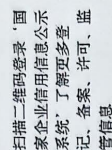 扫描二维码登录‘国
家企业信用信息公示
系统’了解更多登
记、备案、许可、监
管信息